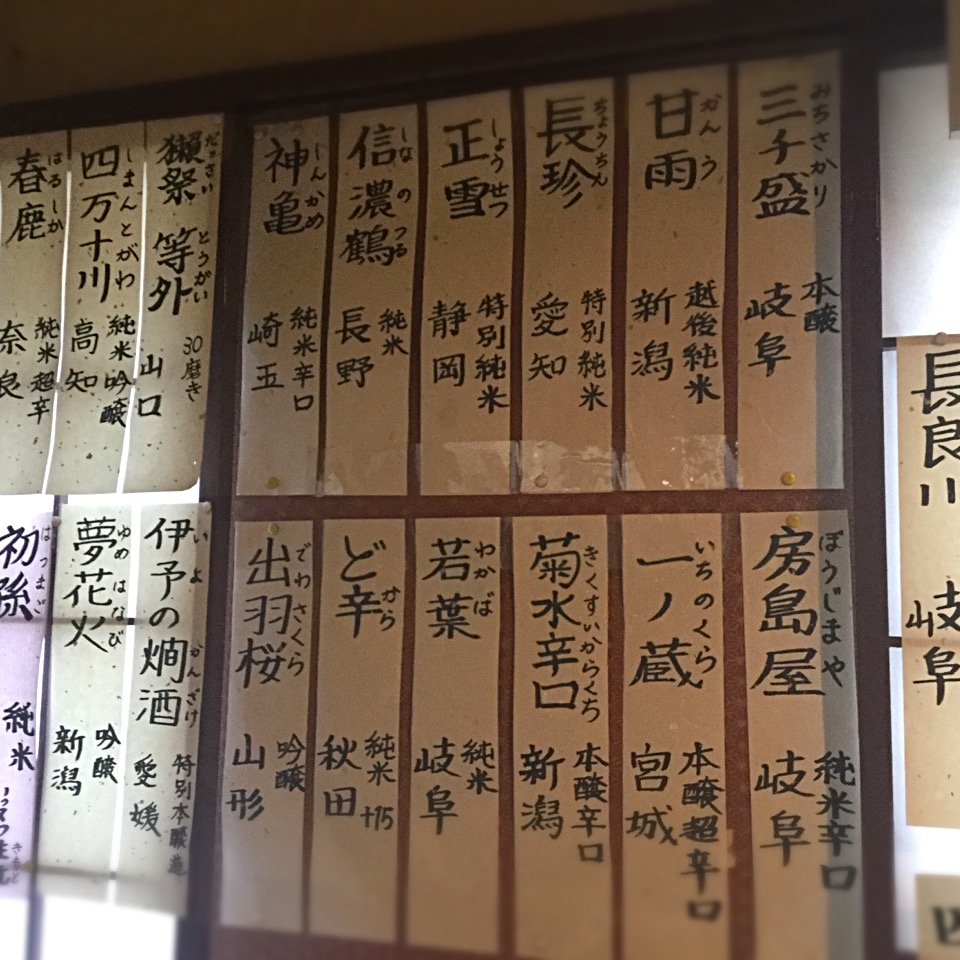 長良川
岐阜
三千盛
みちさかり
本醸
岐阜
甘雨
かんう
越後純米
新潟
長珍
ちょうちん
特別純米
愛知
正雪
しょうせつ
特別純米
静岡
信濃鶴
しなのつる
純米
長野
神亀
しんかめ
純米辛口
崎玉
獺祭 等外
だっさい とうがい
30磨き
山口
四万十川
しまんとがわ
純米吟醸
高知
春鹿
はるしか
純米超辛
奈良
房島屋
ぼうじまや
純米辛口
岐阜
一ノ蔵
いちのくら
本醸超辛口
宮城
菊水辛口
きくすいからくち
本醸辛口
新潟
若葉
わかば
純米
岐阜
ど辛
から
純米 +15
秋田
出羽桜
でわさくら
吟醸
山形
伊予の燗酒
いよ かんざけ
特別本醸造
愛媛
夢花火
ゆめはなび
吟醸
新潟
初孫
はつまご
純米
四